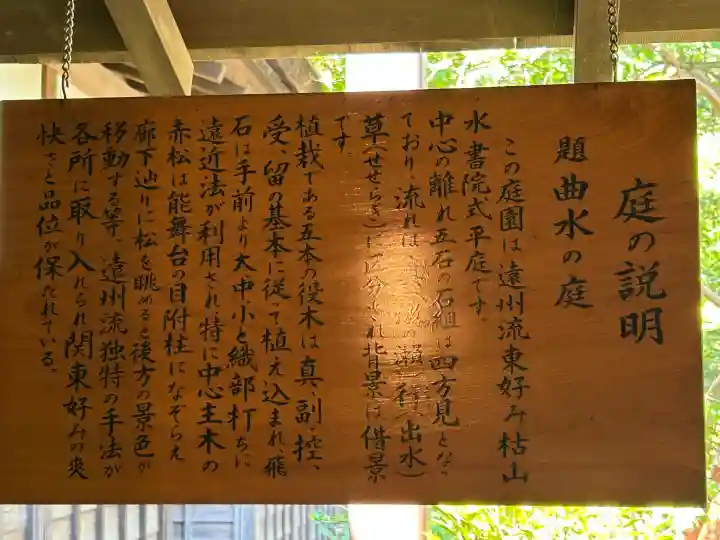 庭の説明
題 曲水の庭
この庭園は遠州流東好み枯山
水書院式平庭です。
中心の離れ五石の石組は四方見となっ
ており、流れは 瀬 行 出水)
草(せせらぎ)に区分され背景は借景
です。
植栽である五本の役木は真、副、控、
受、留の基本に従って植え込まれ、飛
石は手前より大中小と織部打ちに
遠近法が利用され、特に中心主木の
赤松は能舞台の目附柱になぞらえ
廊下辿りに松を眺めると後方の景色が
移動する等、遠州流独特の手法が
各所に取り入れられ関東好みの爽
快さと品位が保たれている。